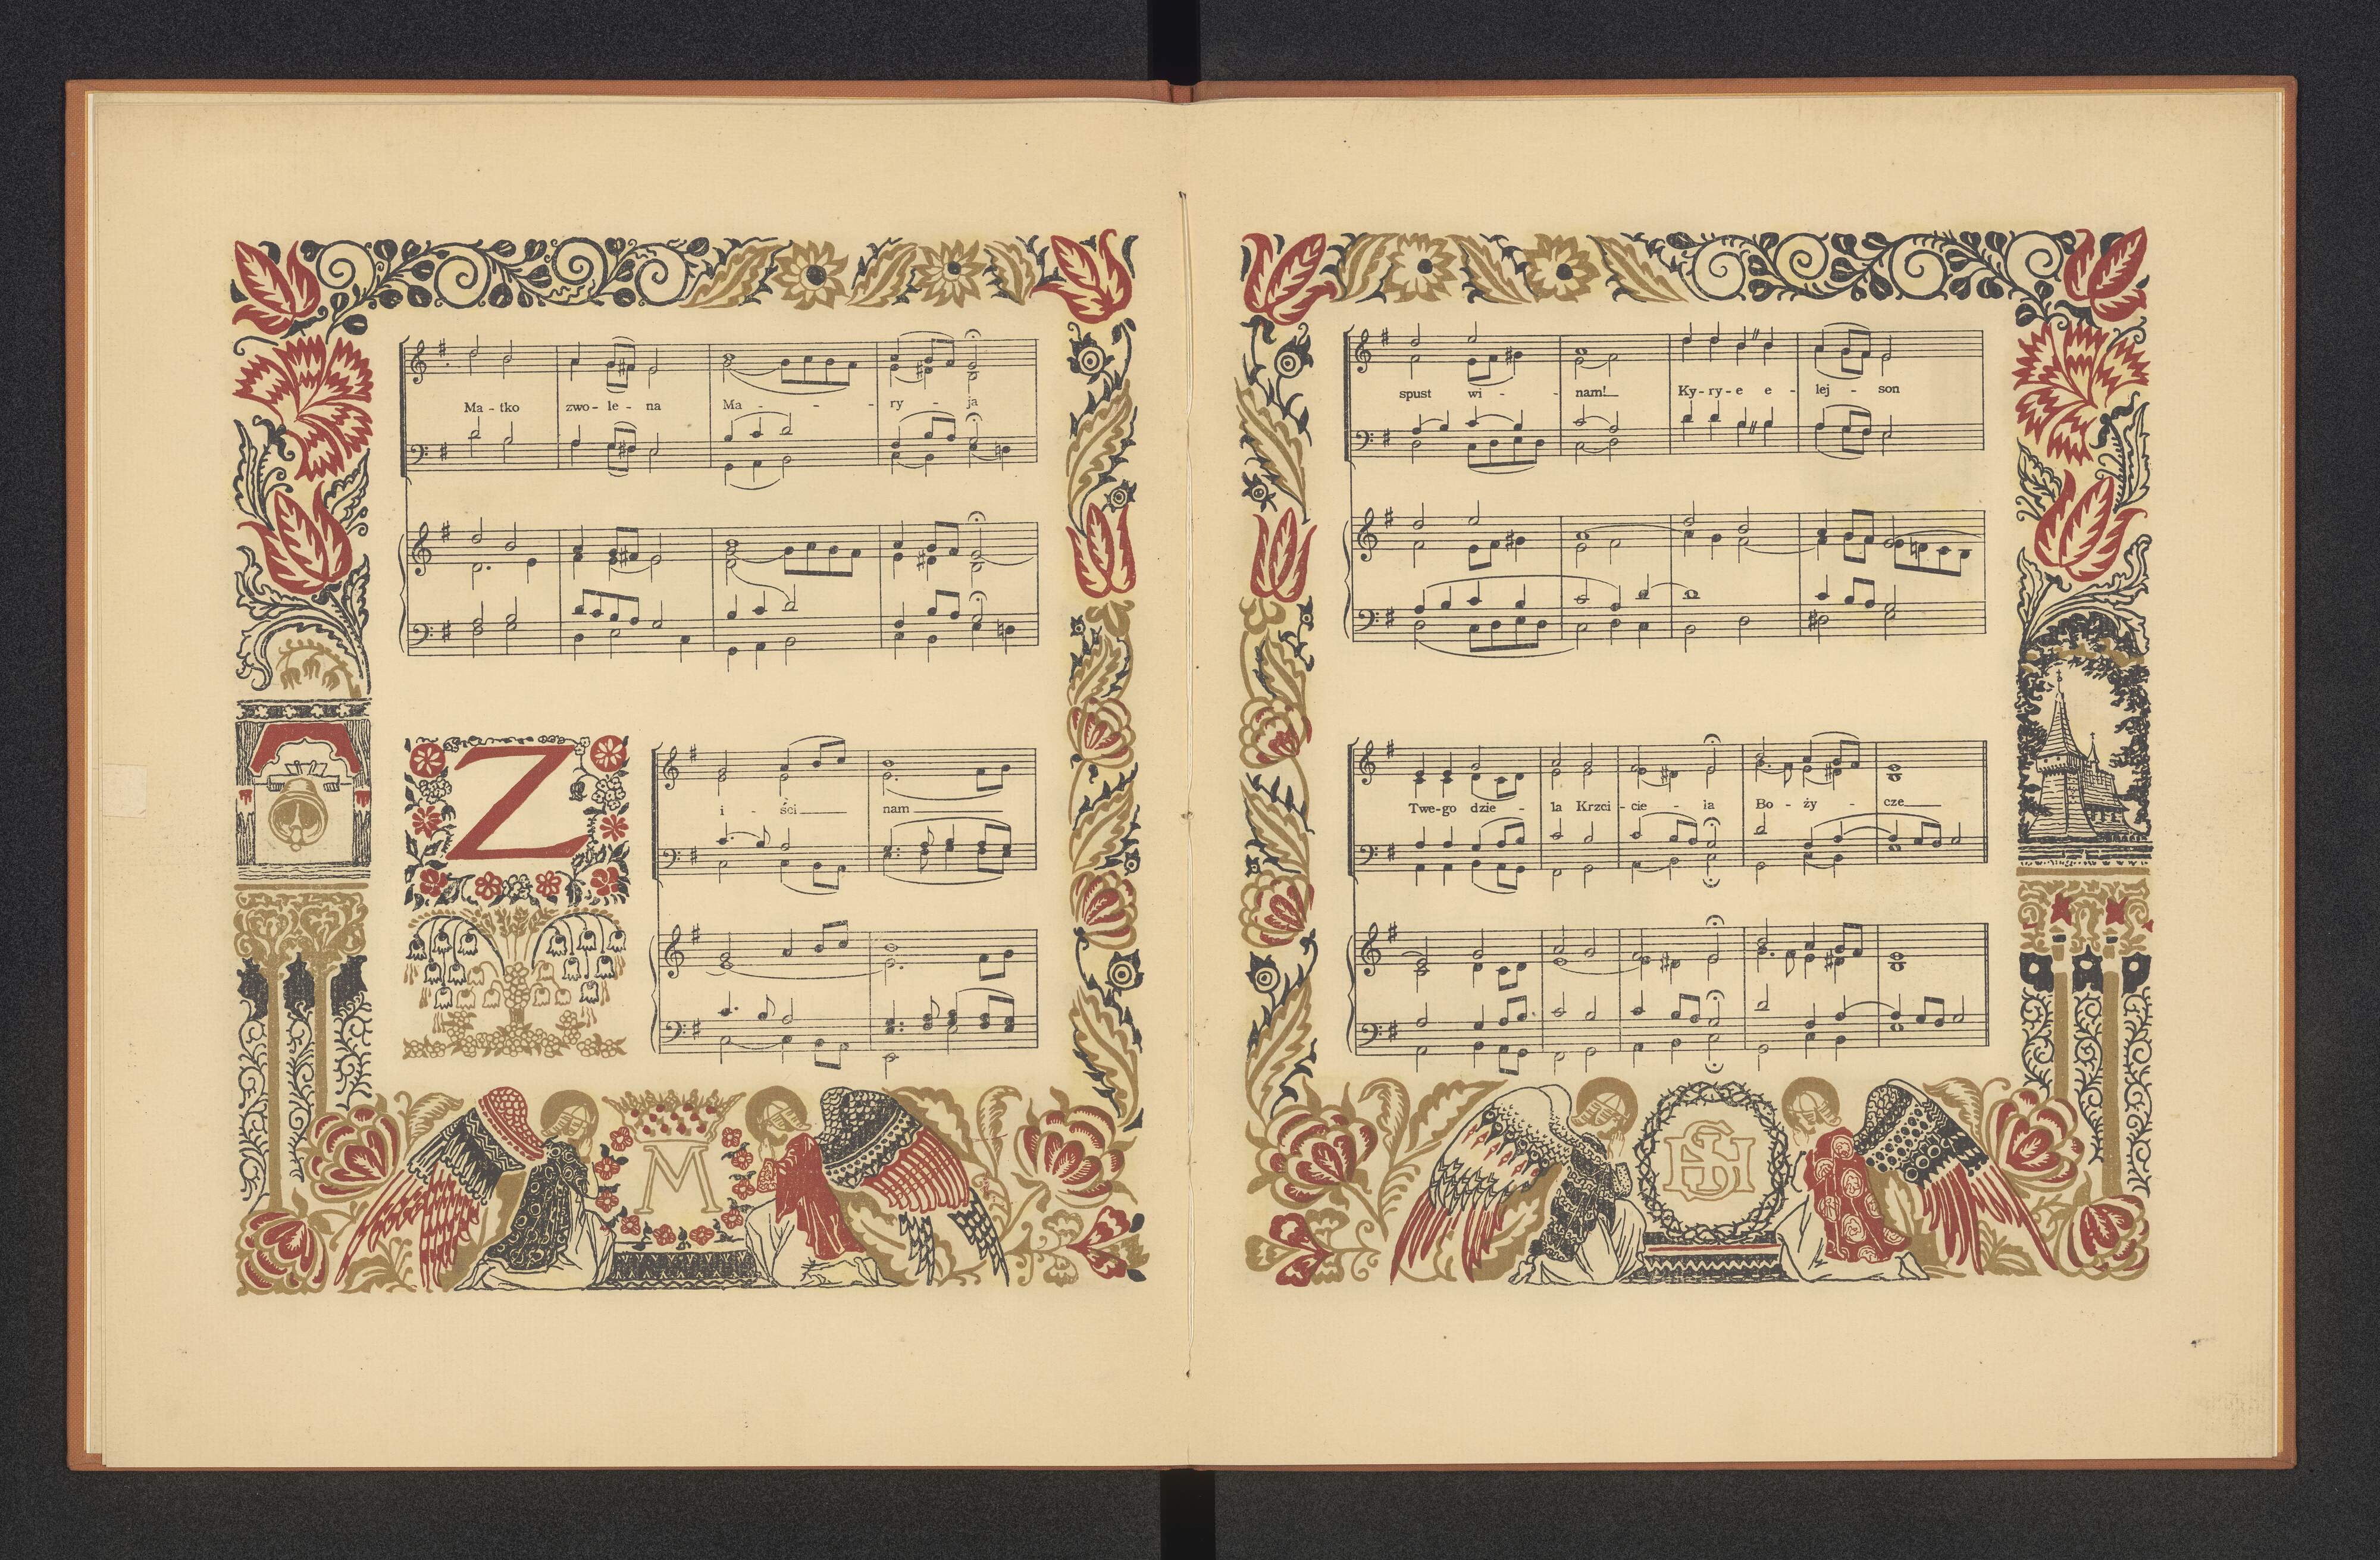 Ma - tko zwo - le - na Ma - - - ry - ja
Z i - ści nam
M
spust wi - - nam! Ky - ry - e e - lej - son
Twe - go dzie - la Krzci - cie - la Bo - ży - cze
IHS